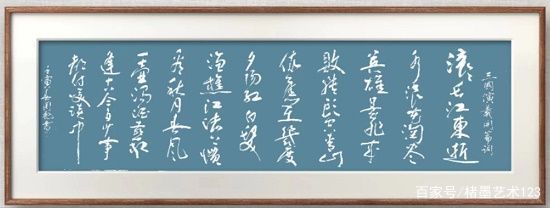 三國演義開篇詞
滚滚长江東逝
水浪花淘尽
英雄是非成
敗转头空青山
依舊在幾度
夕陽红白髮
渔樵江渚上惯
看秋月春风
一壶濁酒喜相
逢古今多少事
都付笑谈中
百家号/楮墨艺术123